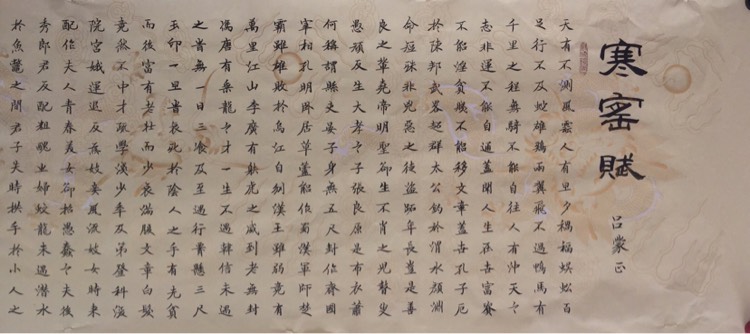 寒窑賦
吕蒙正
天有不測風雲人有旦夕禍福蜈蚣百
足行不及蛇雄鷄兩翼飛不過鴨馬有
千里之程無騎不能自往人有沖天之
志非運不能自通蓋聞人生在世富貴
不能淫貧賤不能移文章蓋世孔子厄
於陳邦武畧超群太公釣於渭水顔淵
命短殊非兇惡之徒盗跖年長豈是善
良之輩堯帝明聖卻生不肖之兒瞽叟
愚頑反生大孝之子張良原是布衣蕭
何稱謂縣吏晏子身無五尺封作齊國
宰相孔明卧居草蘆能作蜀漢軍師楚
霸雖雄敗於烏江自刎漢王雖弱竟有
萬里江山李廣有射虎之威到老無封
馮唐有乘龍之才一生不遇韓信未遇
之時無一日三餐及至遇行腰懸三尺
玉印一旦時衰死於陰人之手有先貧
而後富有老壯而少衰滿腹文章白髮
竟然不中才疏學淺少年及第登科深
院宮娥運退反爲妓妾風流妓女時來
配作夫人青春美女卻招愚蠢之夫俊
秀郎君反配粗醜之婦蛟龍未遇潛水
於魚鱉之間君子失時拱手於小人之